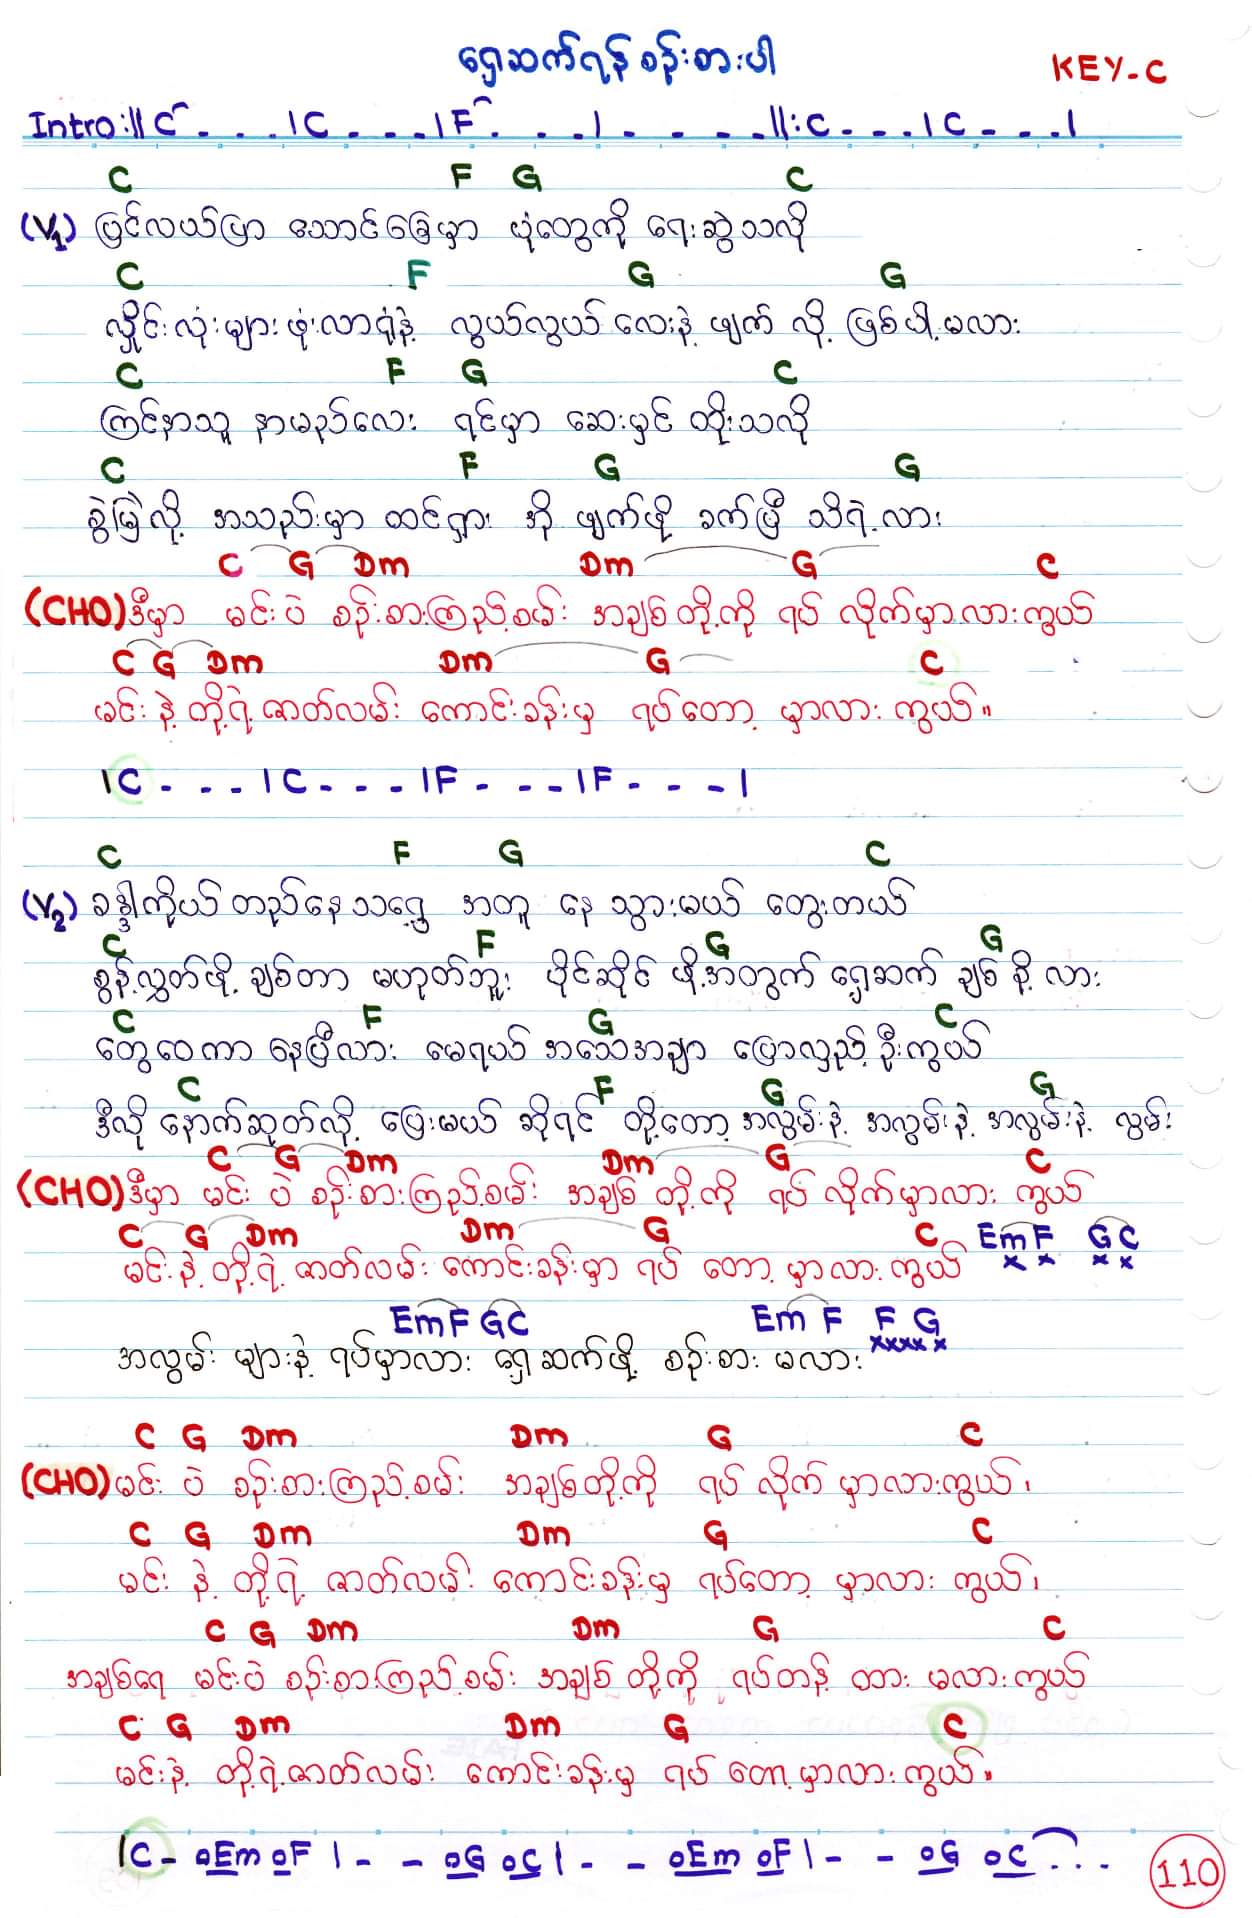 ရှေ့ဆက်ရန်စဉ်းစားပါ
KEY-C
Intro:||C . . . |C - - - |F . . . | . - - - - ||:C - - - |C - - - |
C F G C
(V1) ပြင်လယ်ပြာ သောင်ခြေမှာ ပုံတွေကို ရေးဆွဲသလို
C F G G
လှိုင်းလုံးများဖုံးလာရုံနဲ့ လွယ်လွယ်လေးနဲ့ ဖျက်လို့ ဖြစ်ပါ့မလား
C F G C
ကြင်နာသူ နာမည်လေး ရင်မှာ ဆေးမှင် ထိုးသလို
C F G G
စွဲမြဲလို့ အသည်းမှာ ထင်ရှား အို ဖျက်ဖို့ ခက်ပြီ သိရဲ့လား
C G Dm Dm G C
(CHO) ဒီမှာ မင်းပဲ စဉ်းစားကြည့်စမ်း အချစ်တို့ကို ရပ်လိုက်မှာလားကွယ်
C G Dm Dm G C
မင်းနဲ့တို့ရဲ့ဇာတ်လမ်း ကောင်းခန်းမှ ရပ်တော့မှာလားကွယ်။
|C - - - |C - - - |F - - - |F - - - |
C F G C
(V2) ခန္ဒါကိုယ်တည်နေသရွေ့ အတူ နေသွားမယ် တွေးတယ်
C F G G
စွန့်လွှတ်ဖို့ ချစ်တာ မဟုတ်ဘူး ပိုင်ဆိုင်ဖို့အတွက် ရှေ့ဆက် ချစ်နို့လား
C F G C
တွေဝေကာ နေပြီလား မေရယ် အသေအချာ ပြောလှည့်ဦးကွယ်
C F G G
ဒီလို နောက်ဆုတ်လို့ ပြေးမယ် ဆိုရင် တို့တော့ အလွမ်းနဲ့ အလွမ်းနဲ့ အလွမ်းနဲ့ လွမ်း
C G Dm Dm G C
(CHO) ဒီမှာ မင်းပဲ စဉ်းစားကြည့်စမ်း အချစ်တို့ကို ရပ်လိုက်မှာလားကွယ်
C G Dm Dm G C Em F G C
မင်းနဲ့တို့ရဲ့ ဇာတ်လမ်း ကောင်းခန်းမှာ ရပ်တော့မှာလားကွယ် x x x x
Em F G C Em F F G
xxxx x
အလွမ်းများနဲ့ ရပ်မှာလား ရှေ့ဆက်ဖို့ စဉ်းစားမလား
C G Dm Dm G C
(CHO) မင်းပဲ စဉ်းစားကြည့်စမ်း အချစ်တို့ကို ရပ်လိုက်မှာလားကွယ်၊
C G Dm Dm G C
မင်းနဲ့ တို့ရဲ့ ဇာတ်လမ်း ကောင်းခန်းမှ ရပ်တော့မှာလားကွယ်၊
C G Dm Dm G C
အချစ်ရေ မင်းပဲ စဉ်းစားကြည့်စမ်း အချစ်တို့ကို ရပ်တန့်ထားမလားကွယ်
C G Dm Dm G C
မင်းနဲ့ တို့ရဲ့ဇာတ်လမ်း ကောင်းခန်းမှ ရပ်တော့မှာလားကွယ်။
|C - oEm oF | - - oG oC | - - oEm oF | - - oG oC . . .
110